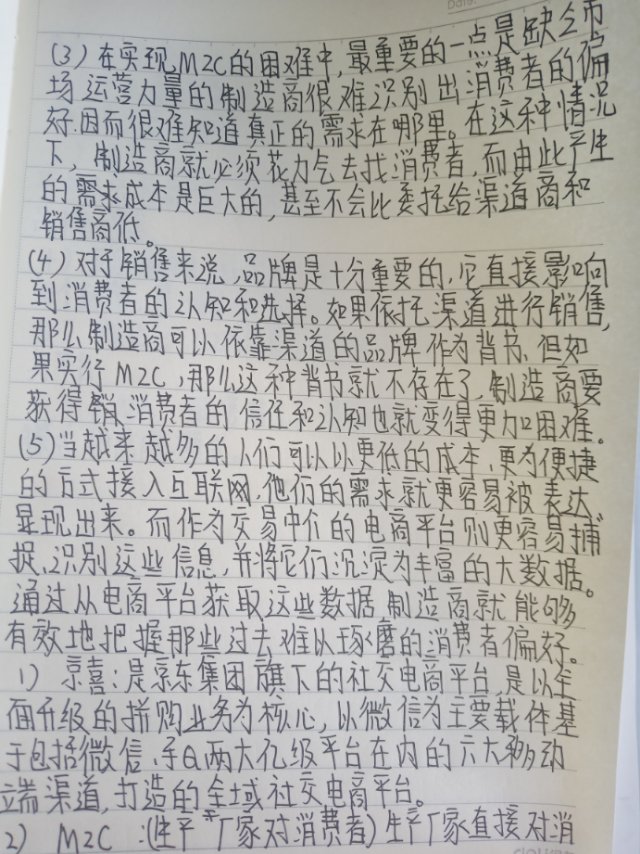 (3) 在实现M2C的困难中,最重要的一点是缺乏市
场运营力量的制造商很难识别出消费者的偏
好.因而很难知道真正的需求在哪里。在这种情况
下,制造商就必须花力气去找消费者,而由此产生
的需求成本是巨大的,甚至不会比委托给渠道商和
销售商低。
(4) 对于销售来说,品牌是十分重要的,它直接影响
到消费者的认知和选择。如果依托渠道进行销售,
那么制造商可以依靠渠道的品牌作为背书.但如
果实行M2C,那么这种背书就不存在了,制造商要
获得消费者的信任和认知也就变得更加困难。
(5)当越来越多的人们可以以更低的成本、更为便捷
的方式接入互联网,他们的需求就更容易被表达、
显现出来。而作为交易中介的电商平台则更容易捕
捉、识别这些信息,并将它们沉淀为丰富的大数据。
通过从电商平台获取这些数据,制造商就能够
有效地把握那些过去难以琢磨的消费者偏好。
1) 京喜:是京东集团旗下的社交电商平台,是以全
面升级的拼购业务为核心,以微信为主要载体基
于包括微信、手Q两大亿级平台在内的六大移动
端渠道,打造的全域社交电商平台。
2) M2C :(生产厂家对消费者)生产厂家直接对消